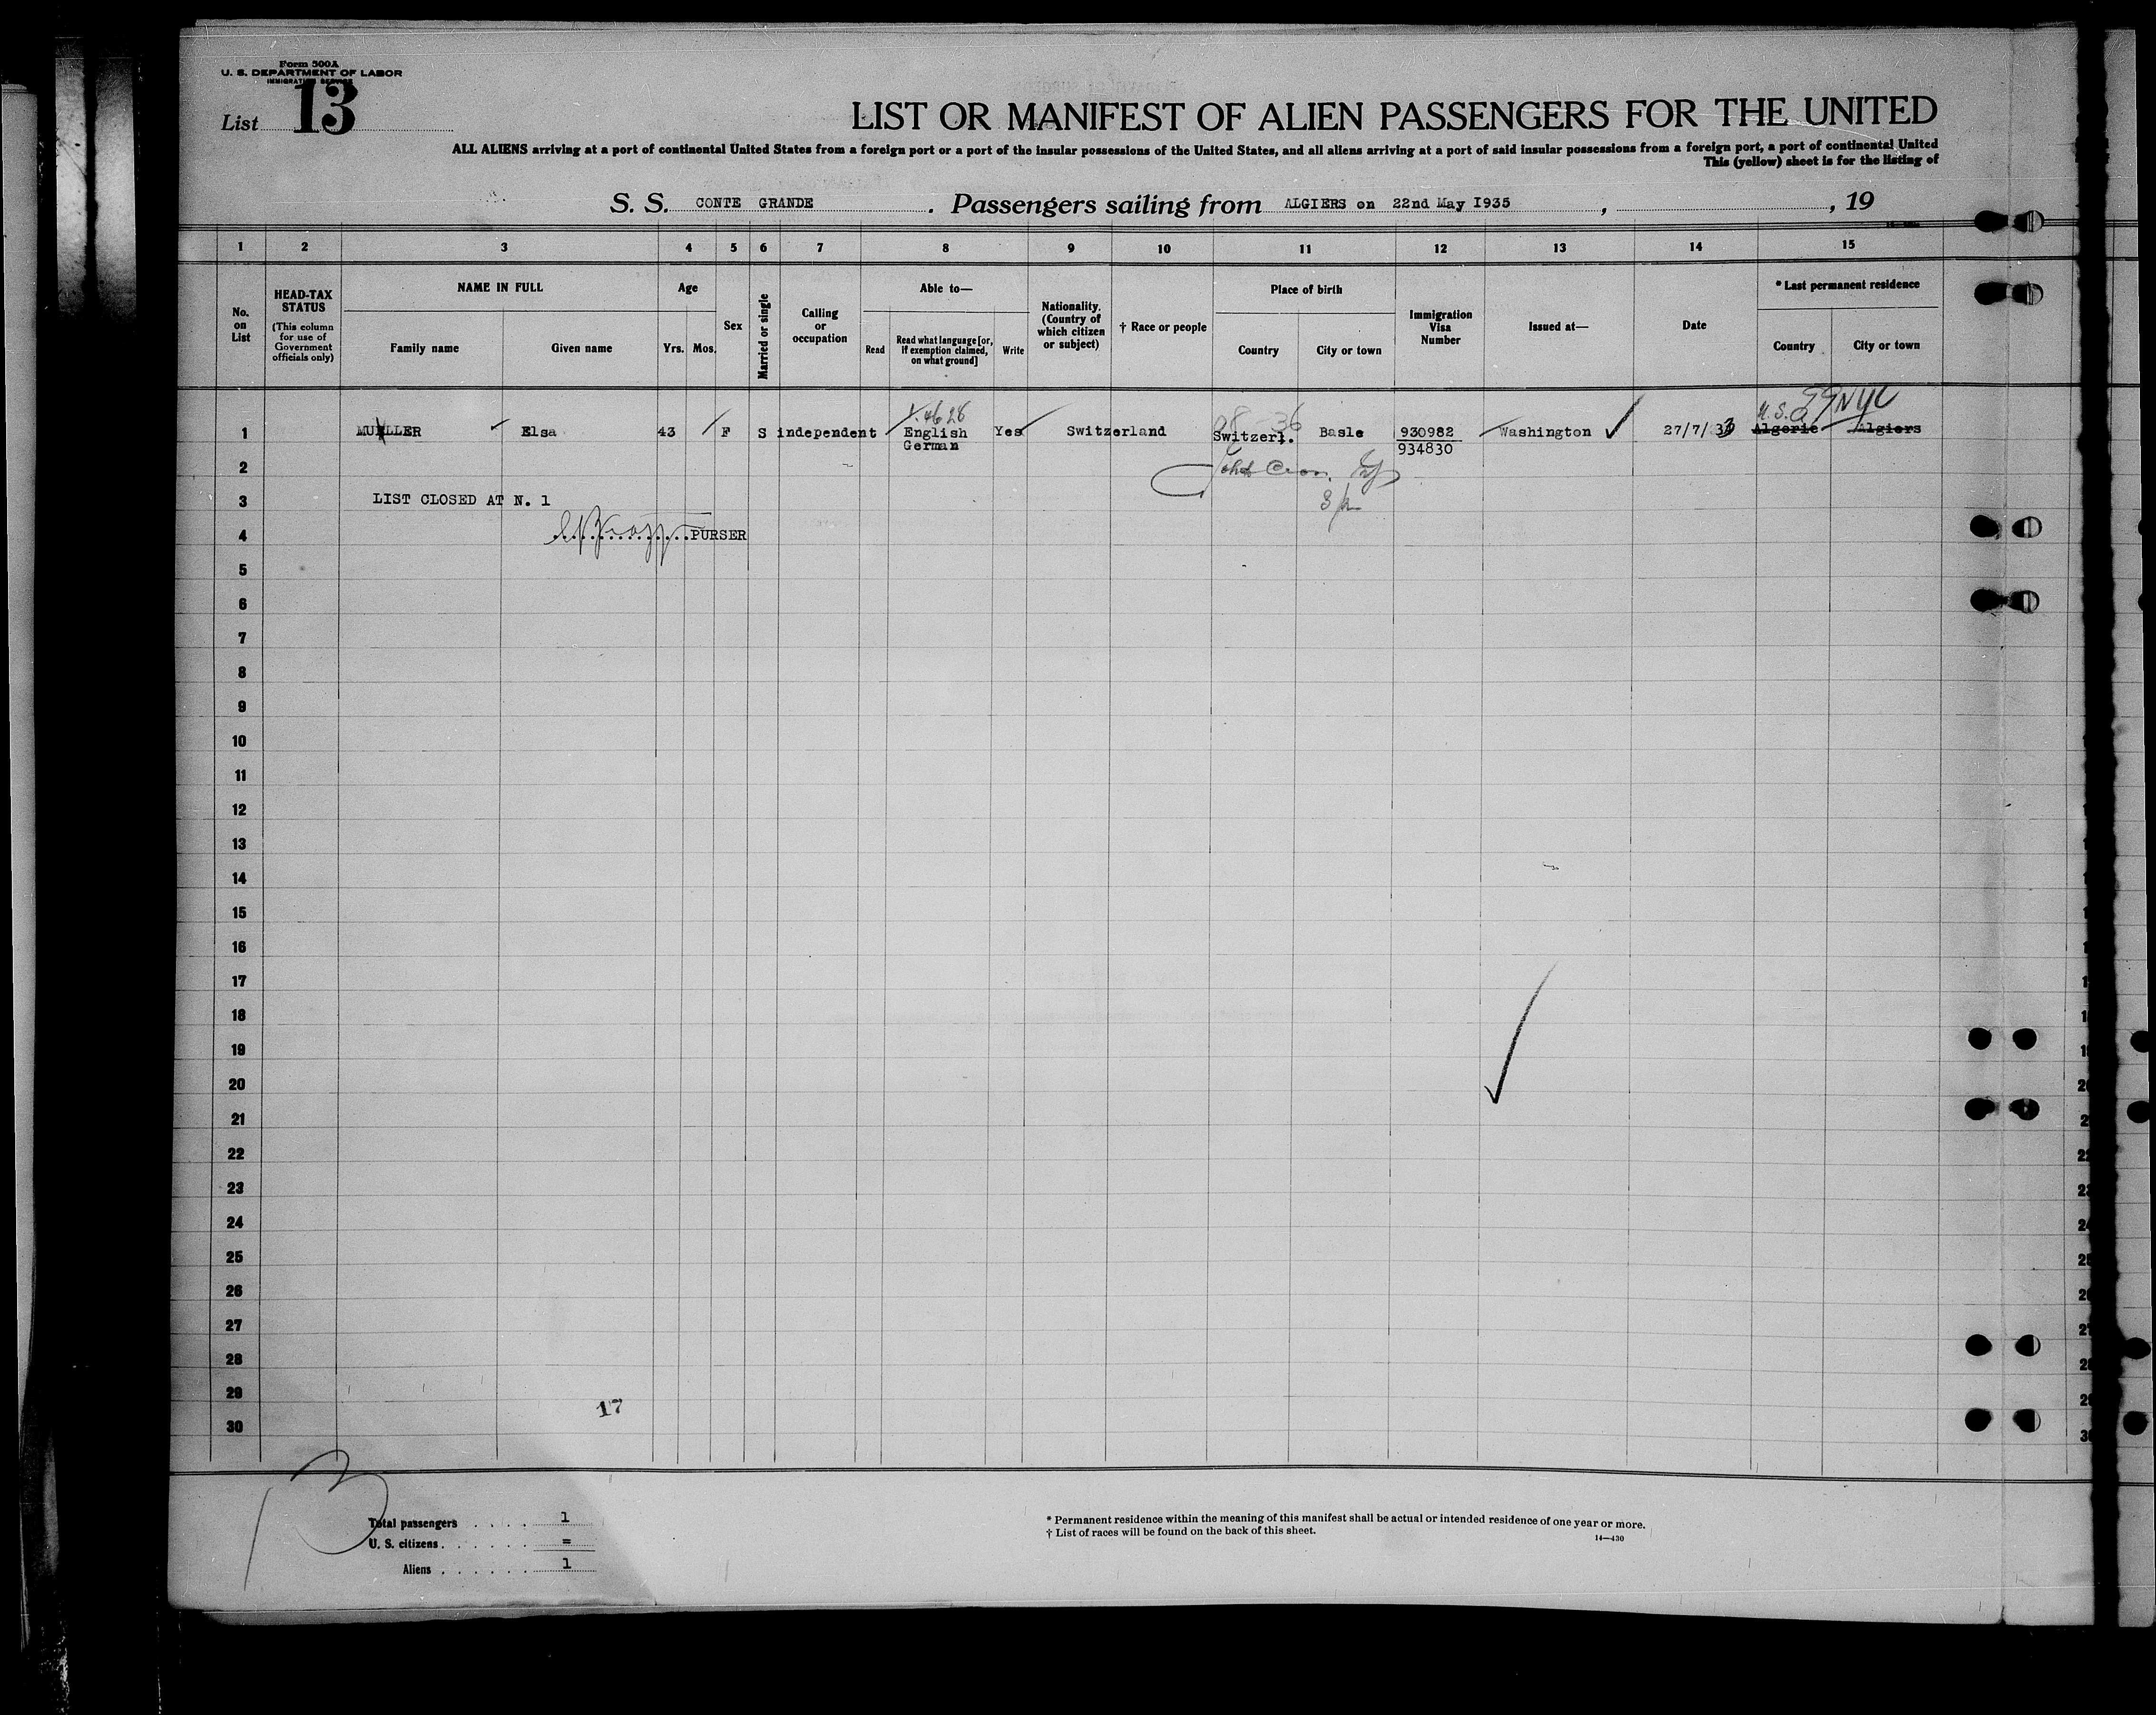 Form 500A
U. S. DEPARTMENT OF LABOR
IMMIGRATION SERVICE
List 13
LIST OR MANIFEST OF ALIEN PASSENGERS FOR THE UNITED
ALL ALIENS arriving at a port of continental United States from a foreign port or a port of the insular possessions of the United States, and all aliens arriving at a port of said insular possessions from a foreign port, a port of continental United
This (yellow) sheet is for the listing of
S. S. CONTE GRANDE. Passengers sailing from ALGIERS on 22nd May I935, , 19
1 2 3 4 5 6 7 8 9 10 11 12 13 14 15
No. on List
HEAD-TAX STATUS
(This column for use of Government officials only)
NAME IN FULL
Family name
Given name
Age
Yrs. Mos.
Sex
Married or single
Calling or occupation
Able to—
Read
Read what language [or, if exemption claimed, on what ground]
Write
Nationality. (Country of which citizen or subject)
† Race or people
Place of birth
Country
City or town
Immigration Visa Number
Issued at—
Date
* Last permanent residence
Country
City or town
U.S. NYC
1 MUELLER Elsa 43 F S independent English Yes Switzerland Switzerl. Basle 930982 Washington 27/7/33 Algerie Algiers
German 934830
2
3 LIST CLOSED AT N. 1
4 PURSER
5
6
7
8
9
10
11
12
13
14
15
16
17
18
19
20
21
22
23
24
25
26
27
28
29
17
30
13
Total passengers . . . . 1
U. S. citizens . . . . . . =
Aliens . . . . . . 1
* Permanent residence within the meaning of this manifest shall be actual or intended residence of one year or more.
† List of races will be found on the back of this sheet.
14—430